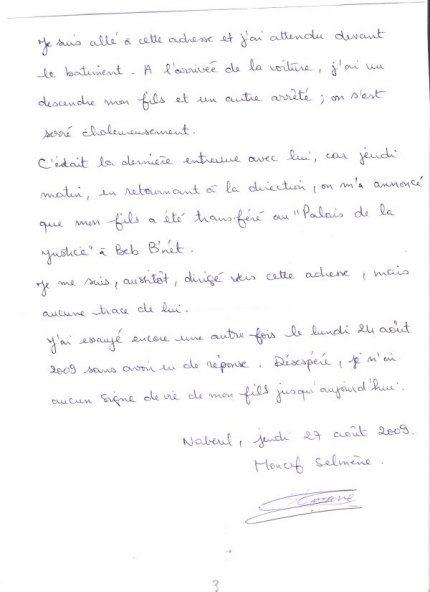 Je suis allé à cette adresse et j'ai attendu devant
le batiment. A l'arrivée de la voiture, j'ai vu
descendre mon fils et un autre arrêté ; on s'est
serré chaleureusement.
C'était la dernière entrevue avec lui, car jeudi
matin, en retournant à la direction, on m'a annoncé
que mon fils a été transféré au "Palais de la
justice" à Beb B'nét.
Je me suis, aussitôt, dirigé vers cette adresse, mais
aucune trace de lui.
J'ai essayé encore une autre fois le lundi 24 août
2009 sans avoir eu de réponse. Désespéré, je n'ai
aucun signe de vie de mon fils jusqu'aujourd'hui.
Nabeul, jeudi 27 août 2009.
Moncef Selmène.
3